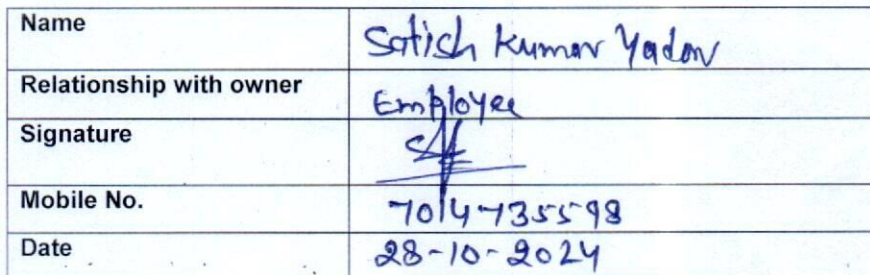 Name Satish Kumar Yadav
Relationship with owner Employee
Signature
Mobile No. 7014735598
Date 28-10-2024